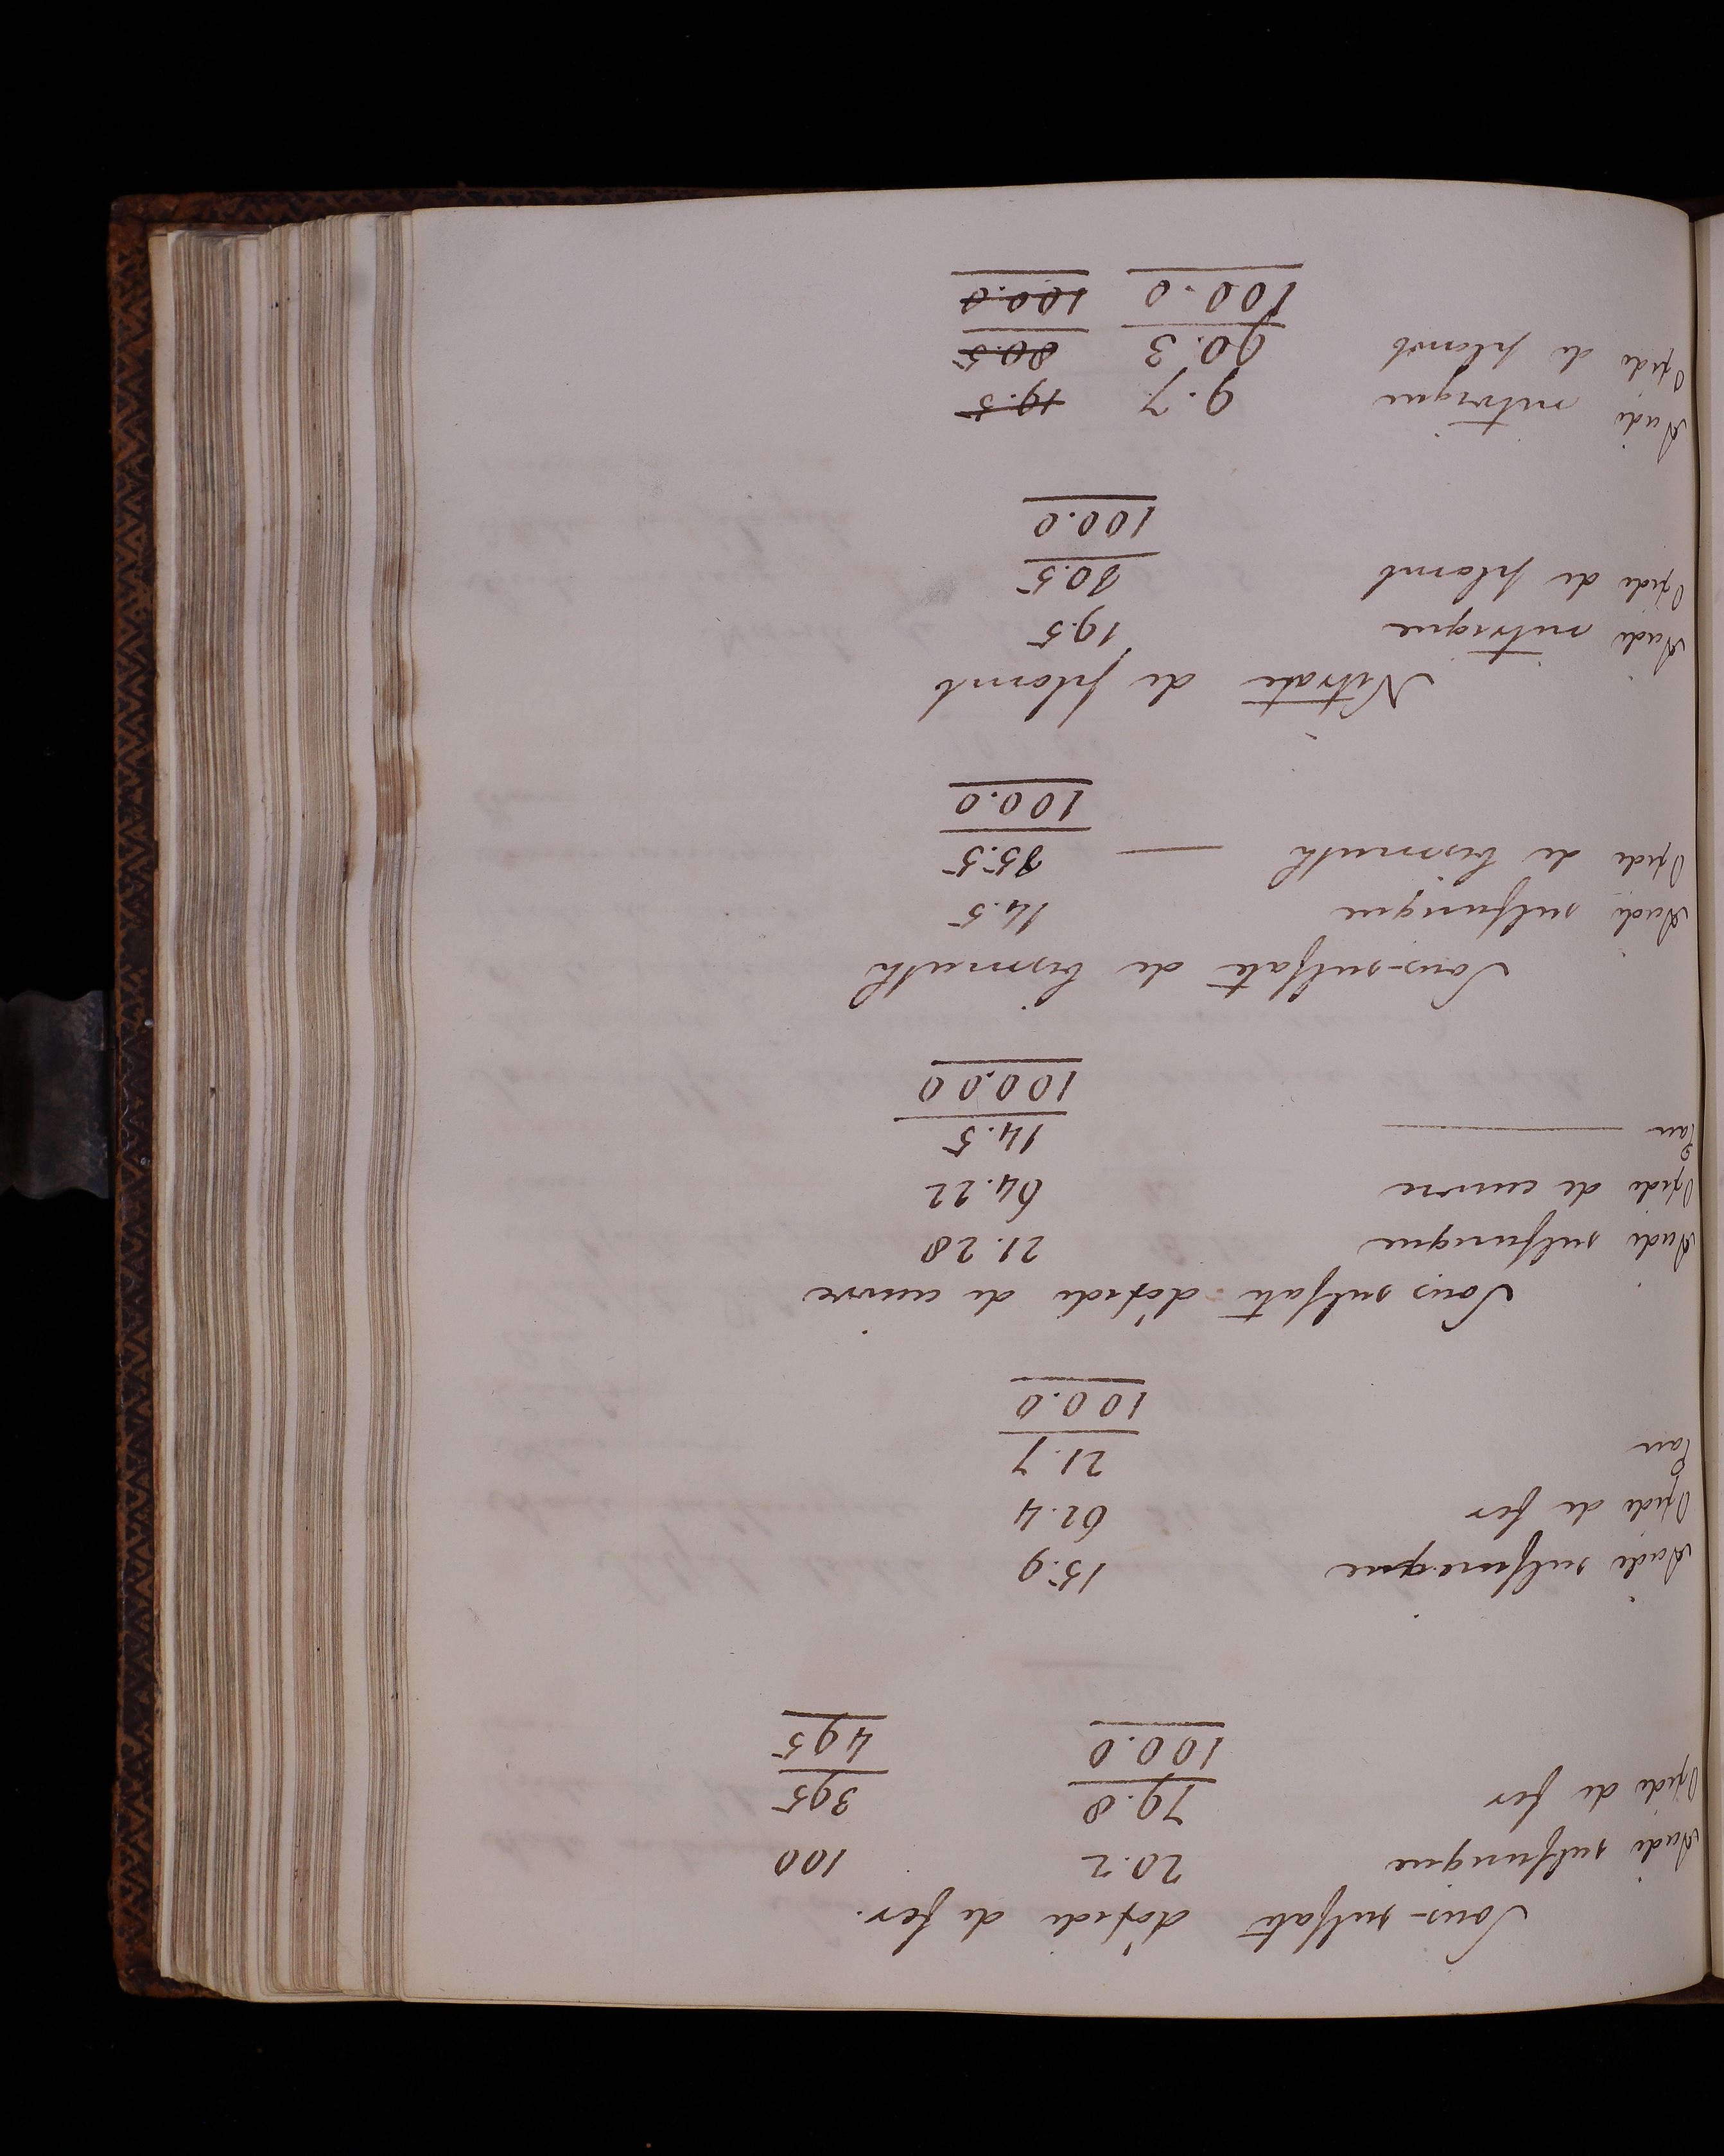 Sous-sulfate d'oxide de fer.
Acide sulfurique 20.2 100
Oxide de fer 79.8 395
100.0 495
Acide sulfurique 15.9
Oxide de fer 62.4
Eau 21.7
100.0
Sous sulfate d'oxide de cuivre
Acide sulfurique 21.28
Oxide de cuivre 64.22
Eau 14.5
100.00
Sous-sulfate de bismuth
Acide sulfurique 14.5
Oxide de bismuth 85.5
100.0
Nitrate de plomb
Acide nitrique 19.5
Oxide de plomb 80.5
100.0
Acide nitrique 9.7 19.5
Oxide de plomb 90.3 80.5
100.0 100.0